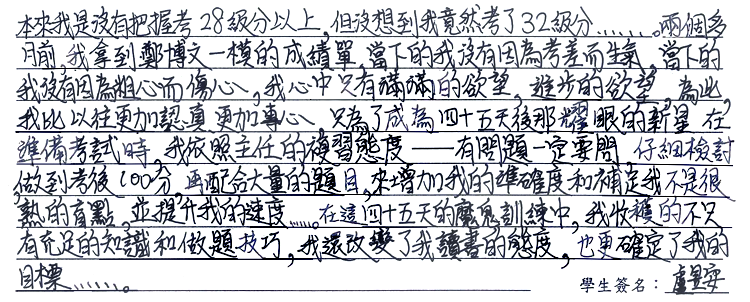 本來我是沒有把握考28級分以上,但沒想到我竟然考了32級分……。兩個多
月前,我拿到鄭博文一模的成績單,當下的我沒有因為考差而生氣,當下的
我沒有因為粗心而傷心,我心中只有滿滿的欲望,進步的欲望,為此,
我比以往更加認真更加專心,只為了成為四十五天後那耀眼的新星,在
準備考試時,我依照主任的複習態度——有問題一定要問,仔細檢討
,做到考後100分,再配合大量的題目,來增加我的準確度和補足我不是很
熟的盲點,並提升我的速度……。在這四十五天的魔鬼訓練中,我收穫的不只
有充足的知識和做題技巧,我還改變了我讀書的態度,也更確定了我的
目標……。
學生簽名:盧昱安